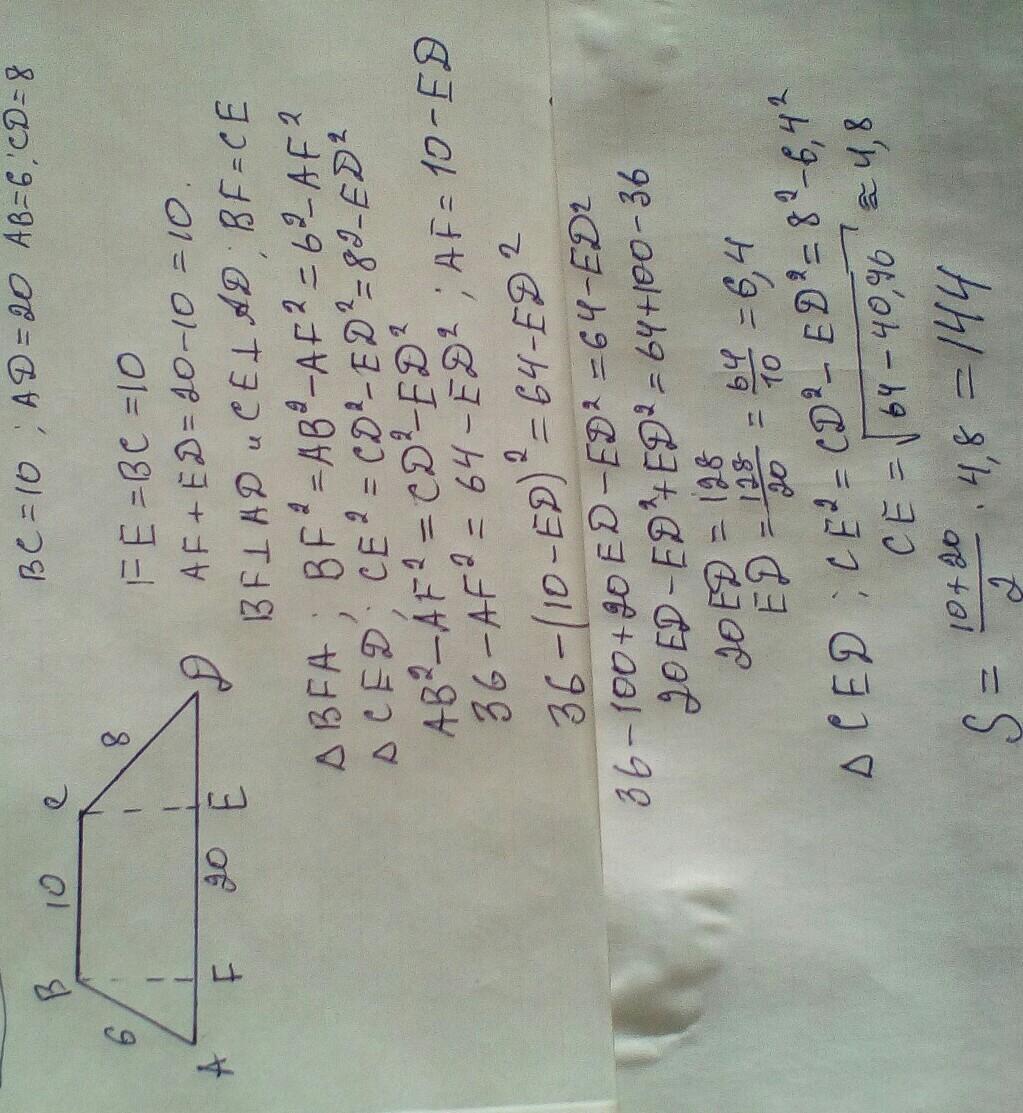 BC=10 ; AD=20 AB=6; CD=8
B 10 C
6 8
A F 20 E D
FE=BC=10
AF+ED=20-10=10.
BF⊥AD и CE⊥AD; BF=CE
△BFA; BF²=AB²-AF²=6²-AF²
△CED; CE²=CD²-ED²=8²-ED²
AB²-AF²=CD²-ED²
36-AF²=64-ED²; AF=10-ED
36-(10-ED)²=64-ED²
36-100+20ED-ED²=64-ED²
20ED-ED²+ED²=64+100-36
20ED=128
ED=128/20=64/10=6,4
△CED; CE²=CD²-ED²=8²-6,4²
CE=√64-40,96≅4,8
S=10+20/2·4,8=144